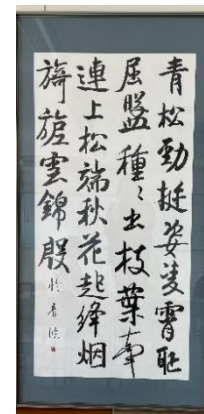 青松勁挺姿凌霄耻
屈盤種〻出枝葉牽
連上松端秋花起絳烟
旖旎雲錦殷